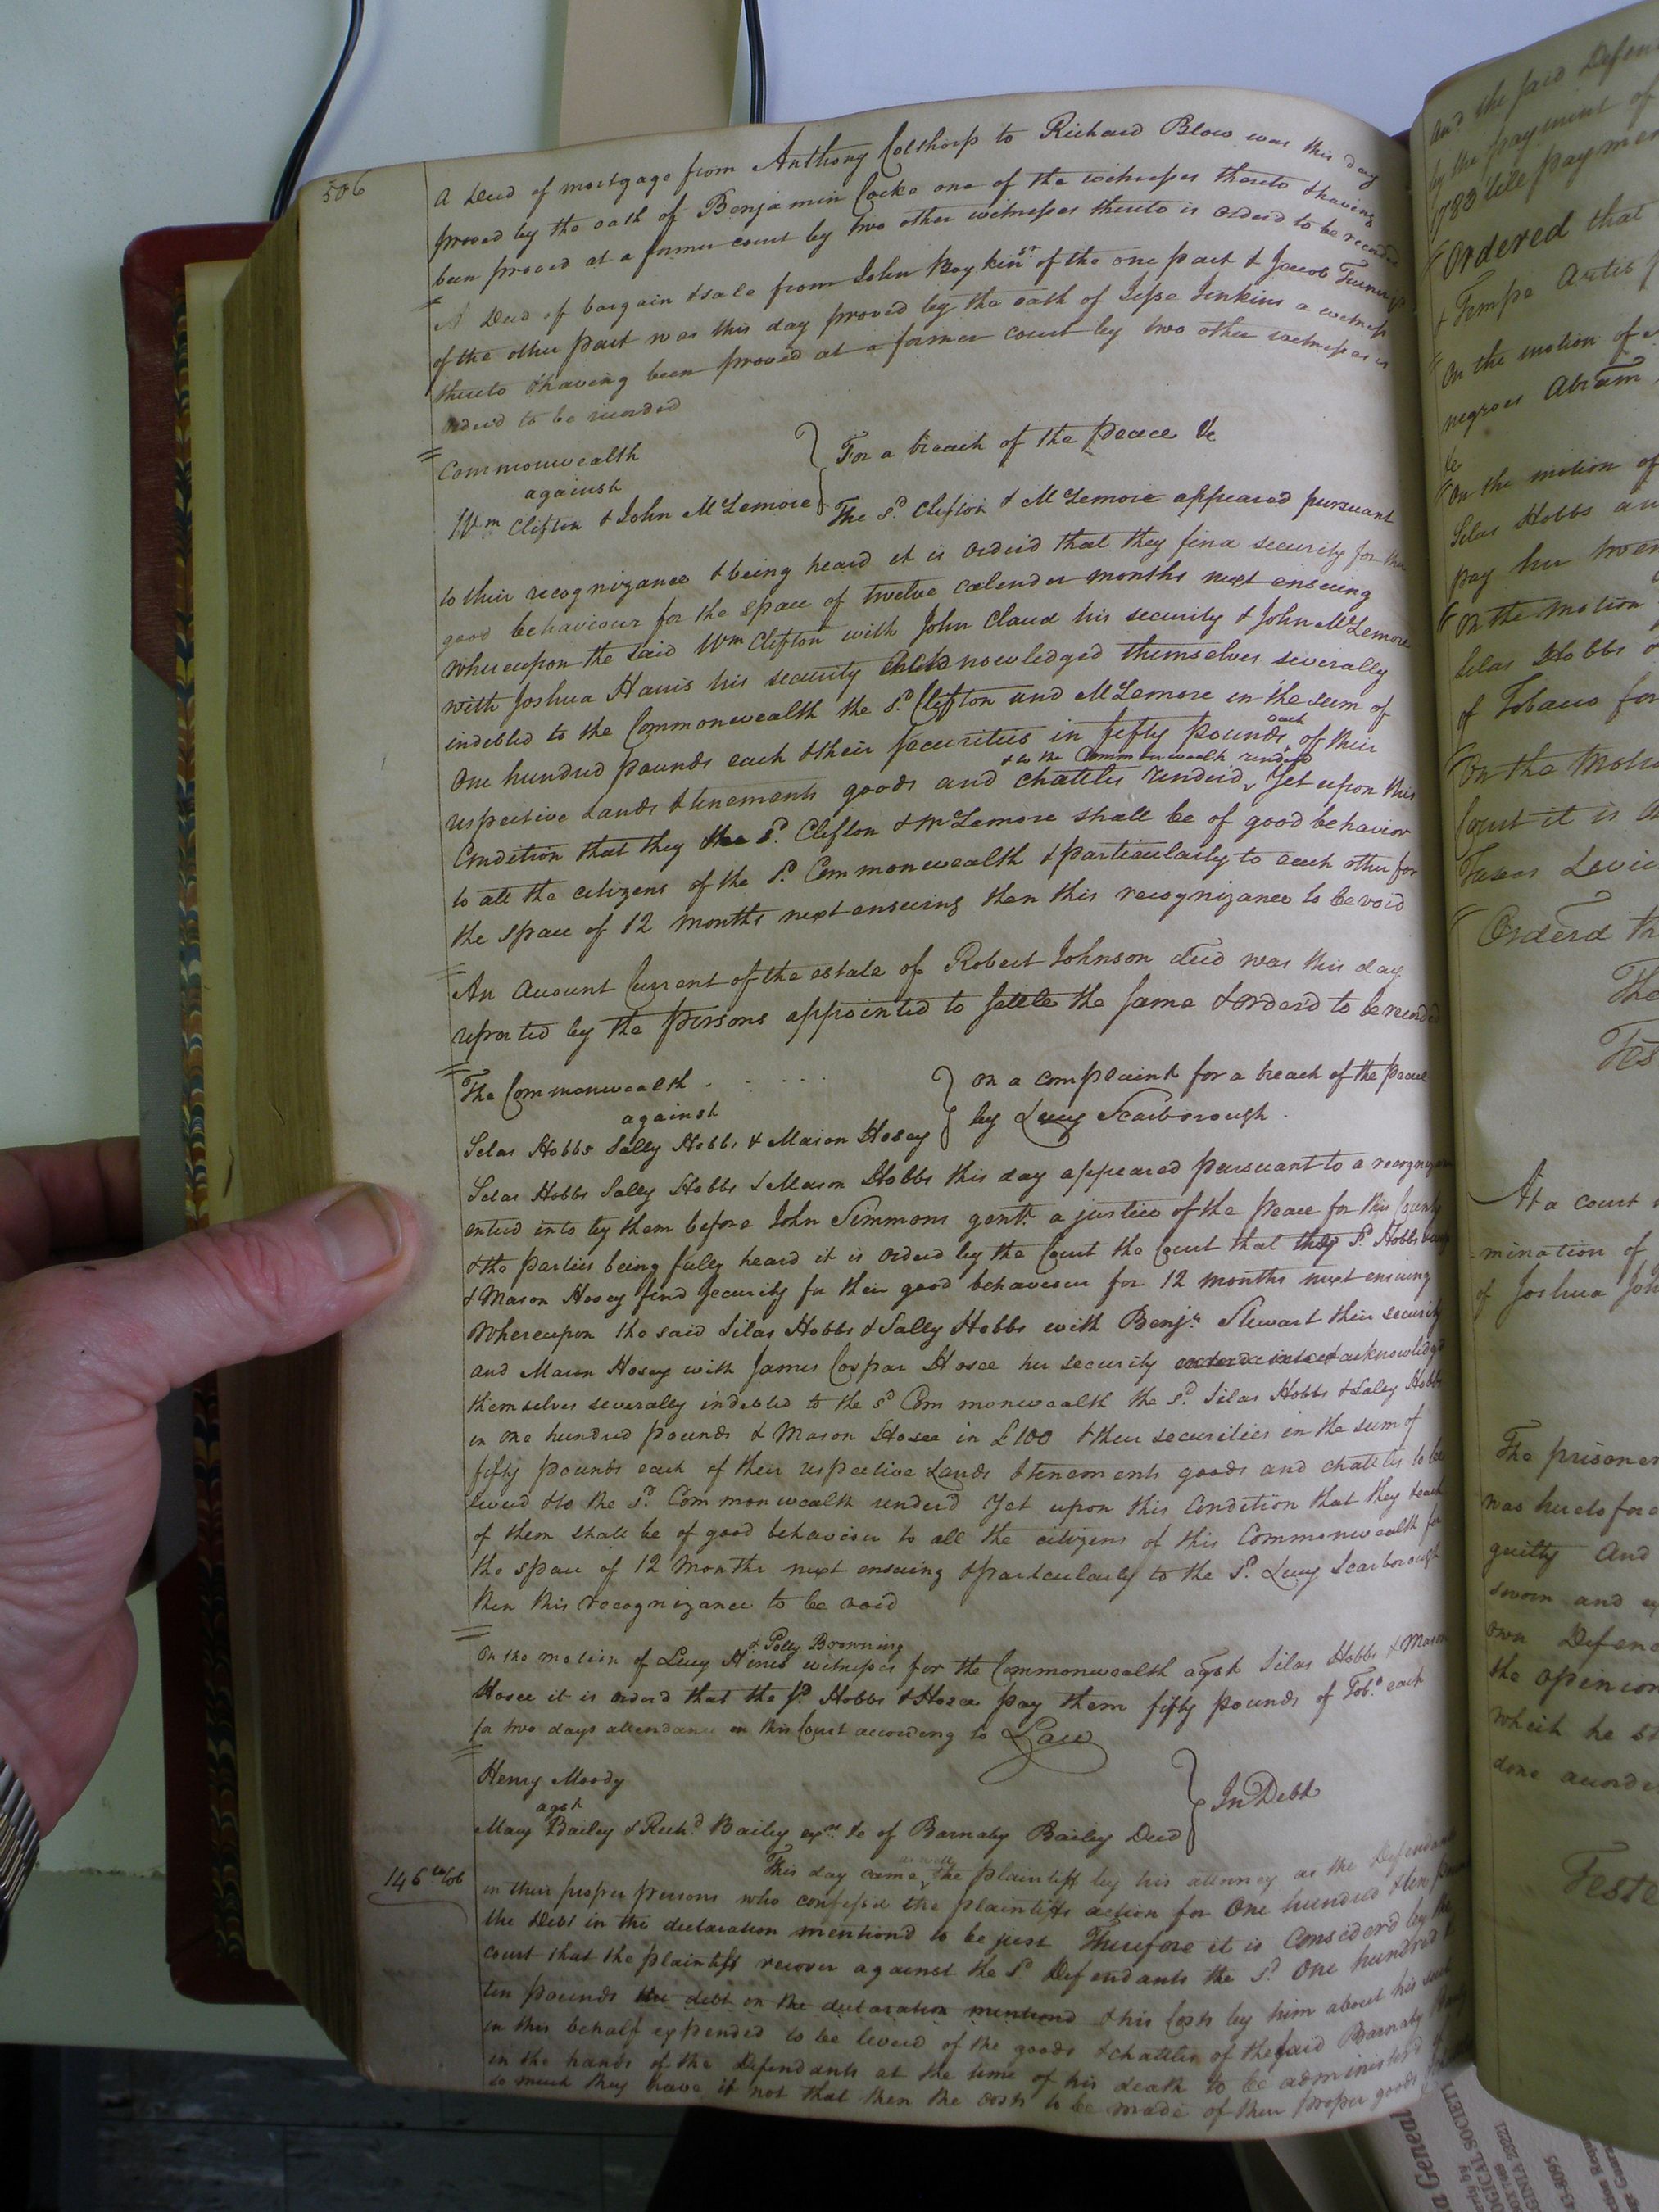 506
A Deed of mortgage from Anthony Colthorp to Richard Blow was this day
proved by the oath of Benjamin Cocke one of the witnesses thereto & having
been proved at a former court by two other witnesses thereto is orderd to be recorded
A Deed of bargain & sale from John Boykin Sr of the one part & Jacob Turner
of the other part was this day proved by the oath of Jesse Jenkins a witness
thereto & having been proved at a former court by two other witnesses is
orderd to be recorded
Commonwealth
against
Wm Clifton & John McLemore
For a breach of the peace &c
The sd. Clifton & McLemore appeared pursuant
to their recognizance & being heard it is orderd that they find security for their
good behaviour for the space of twelve calender months next ensuing
Whereupon the said Wm Clifton with John Claud his security & John McLemore
with Joshua Harris his security acknowledged themselves severally
indebted to the Commonwealth the sd. Clifton and McLemore in the sum of
One hundred pounds each & their securities in fifty pounds each of their
respective Lands & tenements goods and chattels renderd, & to the Commonwealth renderd Yet upon this
Condition that they the sd. Clifton & McLemore shall be of good behavior
to all the citizens of the sd. Commonwealth & particularly to each other for
the space of 12 months next ensuing then this recognizance to be void
An Account Current of the estate of Robert Johnson decd was this day
reported by the persons appointed to settle the same & orderd to be recorded
The Commonwealth
against
Silas Hobbs Sally Hobbs & Mason Hosey
on a complaint for a breach of the peace
by Lucy Scarborough
Silas Hobbs Sally Hobbs & Mason Hobbs this day appeared pursuant to a recognizance
entered into by them before John Simmons gent. a justice of the peace for this County
& the parties being fully heard it is orderd by the Court the Court that they sd. Hobbs
& Mason Hosey find security for their good behaviour for 12 months next ensuing
Whereupon the said Silas Hobbs & Sally Hobbs with Benja. Stewart their security
and Mason Hosey with James Caspar Hosee her security acknowledged
themselves severally indebted to the sd Commonwealth the sd. Silas Hobbs & Sally Hobbs
in one hundred pounds & Mason Hosee in £100 & their securities in the sum of
fifty pounds each of their respective Lands & tenements goods and chattels to be
levied & to the sd. Commonwealth renderd Yet upon this Condition that they & each
of them shall be of good behaviour to all the citizens of this Commonwealth for
the space of 12 Months next ensuing & particularly to the sd. Lucy Scarborough
then this recognizance to be void
On the motion of Lucy Hines & Polly Browning witnesses for the Commonwealth agst Silas Hobbs & Mason
Hosee it is orderd that the sd. Hobbs & Hosee pay them fifty pounds of Tobo. each
for two days attendance on this Court according to Law
Henry Moody
agst
Mary Bailey & Richd. Bailey exrs. &c of Barnaby Bailey Decd
In Debt
This day came as well the plaintiff by his attorney as the Defendants
in their proper persons who confess'd the plaintiffs action for One hundred & ten pounds
the Debt in the declaration mention'd to be just Therefore it is Consider'd by the
court that the plaintiff recover against the sd. Defendants the sd. One hundred &
ten pounds the debt in the declaration mentiond & his Costs by him about his suit
in this behalf expended to be levied of the goods & chattles of the said Barnaby
in the hands of the Defendants at the time of his death to be administerd if
so much they have if not that then the costs to be made of their proper goods
146
and the said Defen
by the payment of
1783 till paymen
Ordered that
& Tempe Artis
On the motion of
negroes Abram
&c
On the motion of
Silas Hobbs an
pay her twen
On the motion
Silas Hobbs &
of Tobacco for
On the motio
Court it is
Orderd th
The
Tes
At a court
mination of
of Joshua Joh
The prisoner
was heretofore
guilty And
sworn and
own Defenc
the opinion
which he st
done accordi
Teste